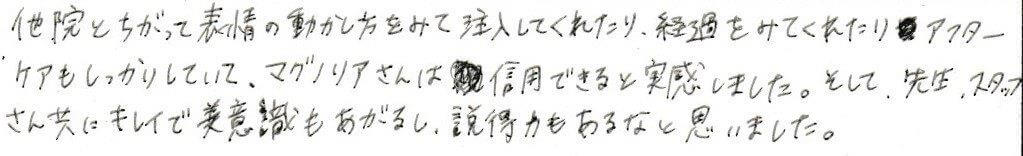 他院とちがって表情の動かし方をみて注入してくれたり、経過をみてくれたりアフター
ケアもしっかりしていて、マグノリアさんは信用できると実感しました。そして、先生、スタッフ
さん共にキレイで美意識もあがるし、説得力もあるなと思いました。